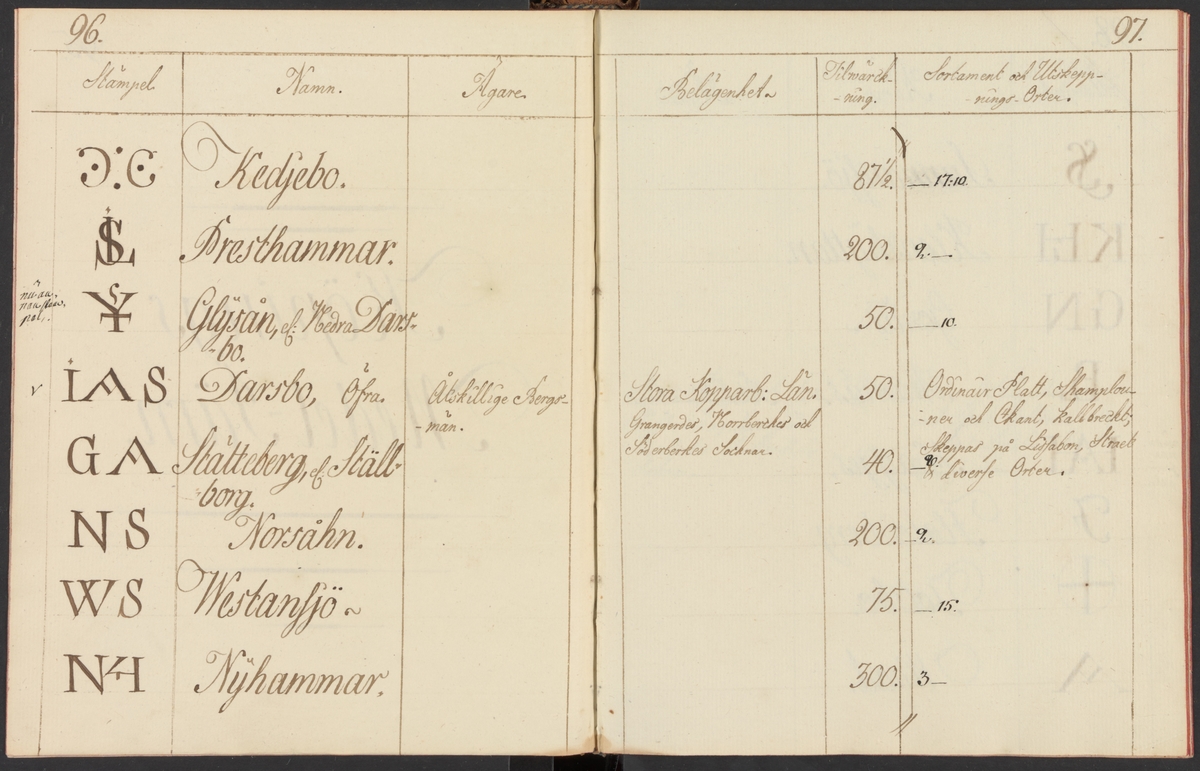 96.
97.
Stämpel
Namn.
Ägare
Belägenhet
Tilwärck-
-ning.
Sortament och Utskepp-
-nings-Orter.
Kedjebo.
87½.
17:10.
Presthammar.
200.
2.—
Glysån, el: Nedra Dars-
-bo.
50.
—10.
IAS
Darsbo, Öfra.
Åtskillige Bergs-
-män.
Stora Kopparb: Län.
Grangerdes, Norrberckes och
Söderberkes Socknar.
50.
Ordinair Platt, Shamplou-
-ner och Ckant, kallbreckt;
Skeppas på Lissabon, Straet
& diverse Orter.
GA
Stätteberg, el Ställ-
borg.
40.
NS
Norsåhn.
200.
2.
WS
Westansjö
75.
—15.
Nyhammar.
300.
3—